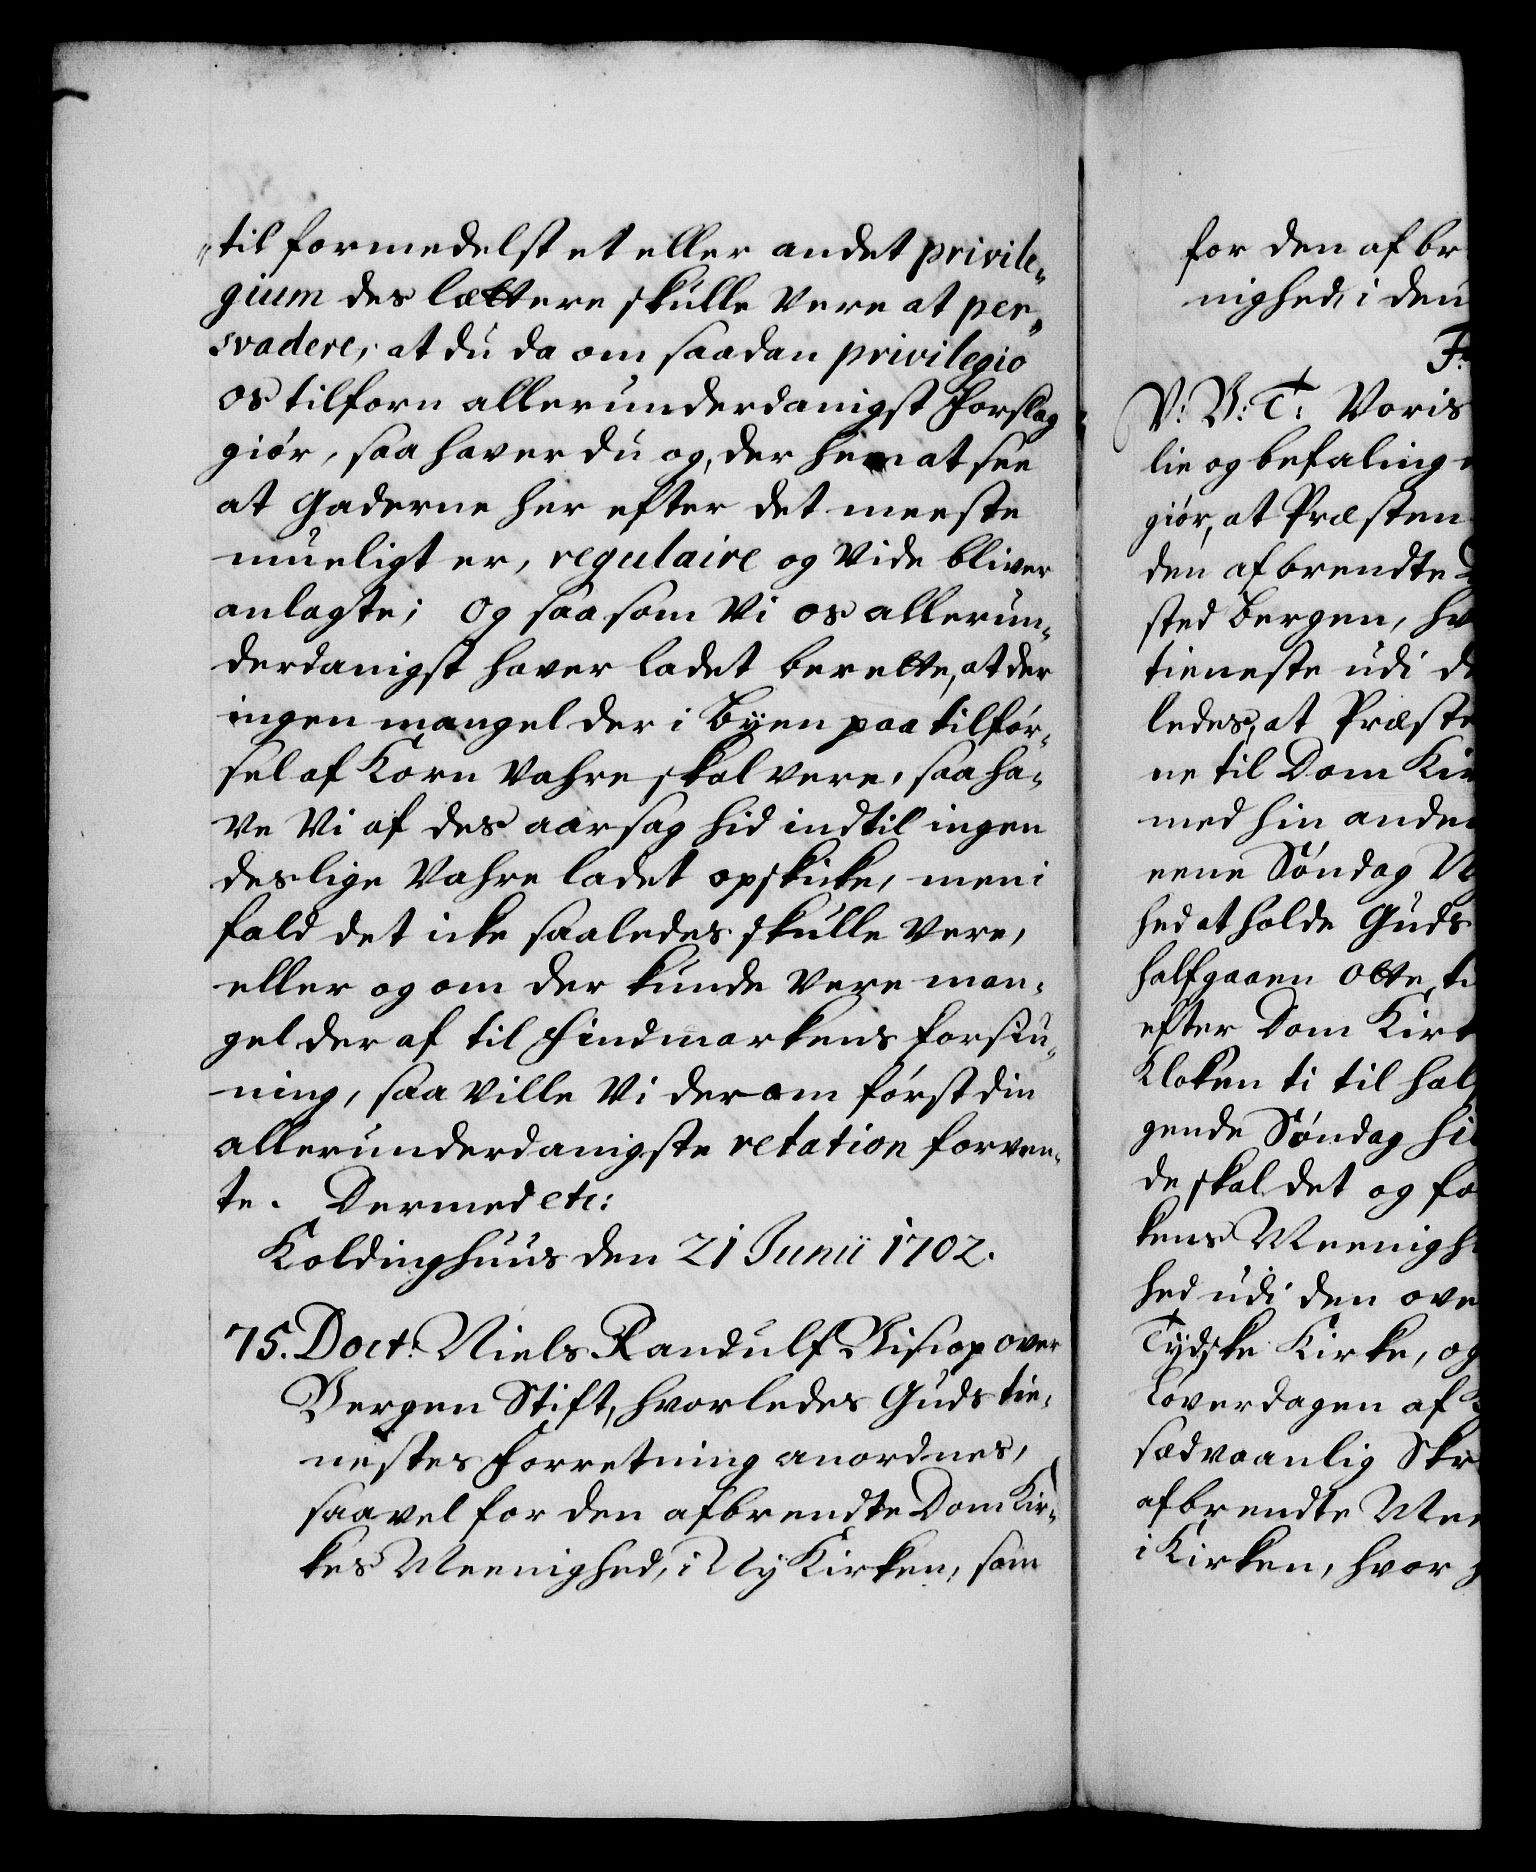 „til formedelst et eller andet privile„
gium des lættere skulle være at per„
svadere, at du da om saadan privilegio
os tilforn allerunderdanigst Forslag
giør, saa haver du og, der hen at see
at Gaderne her efter det meeste
mueligt er, regulaire og vide bliver
anlagte; Og saasom Vi os allerun„
derdanigst haver ladet berette, at der
ingen mangel der i Byen paa tilfør„
sel af Korn vahre skal være, saa ha„
ve Vi af des aarsag hid indtil ingen
deslige Vahre ladet opskicke, men i
fald det icke saaledes skulle være,
eller og om der kunde være man„
gel der af til Findmarkens forsiu„
ning, saa ville Vi derom først din
allerunderdanigste relation forven„
te. Dermed etc:
Koldinghuus den 21 Junii 1702.
75. Doct: Niels Randulf Biscop over
Bergen Stift, hvorledes Guds tie„
nestes Forretning anordnes,
saavel for den afbrendte Dom Kir„
kes Meenighed, i Ny Kirken, som
for den afbr
nighed, i den
Fr
V: B: T: Voris
lie og befaling
giør, at Præsten
den afbrendte
sted Bergen, hv
tieneste udi d
ledes, at Præste
ne til Dom Kir
med hin anden
eene Søndag
hed at holde Guds
halfgaaen Otte, ti
efter Dom Kirk
Kloken ti til hal
gende Søndag hi
de skal det og fo
kens Meenigh
hed udi den ove
Tydske Kirke, og
Løverdagen af
sædvaanlig Skr
afbrendte Mee
i Kirken, hvor